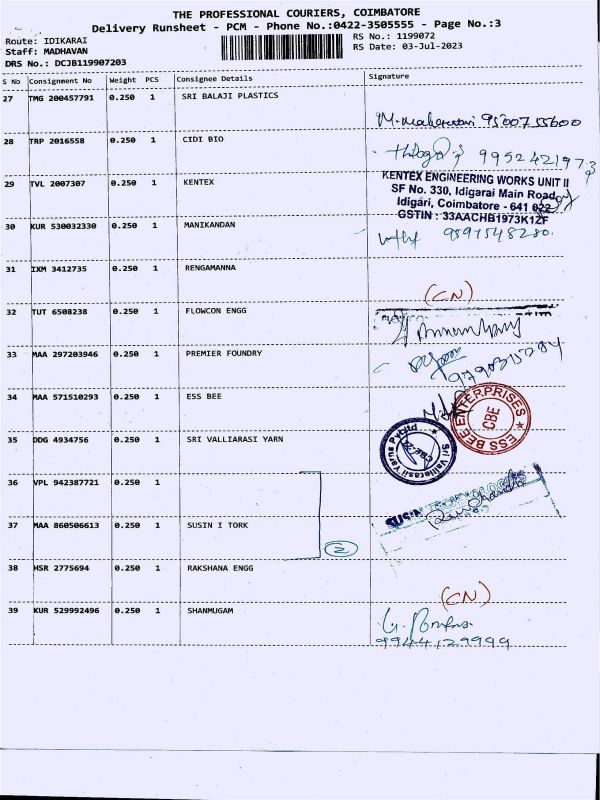 THE PROFESSIONAL COURIERS, COIMBATORE
Delivery Runsheet - PCM - Phone No.:0422-3505555 - Page No.:3
Route: IDIKARAI
RS No.: 1199072
Staff: MADHAVAN
RS Date: 03-Jul-2023
DRS No.: DCJB119907203
S No Consignment No Weight PCS Consignee Details Signature
27 TMG 200457791 0.250 1 SRI BALAJI PLASTICS
28 TRP 2016558 0.250 1 CIDI BIO
9952421973
29 TVL 2007307 0.250 1 KENTEX
KENTEX ENGINEERING WORKS UNIT II
SF No. 330, Idigarai Main Road,
Idigari, Coimbatore - 641 022
GSTIN : 33AACHB1973K1ZF
30 KUR 530032330 0.250 1 MANIKANDAN
9597548280
31 IXM 3412735 0.250 1 RENGAMANNA
(CN)
32 TUT 6508238 0.250 1 FLOWCON ENGG
33 MAA 297203946 0.250 1 PREMIER FOUNDRY
34 MAA 571510293 0.250 1 ESS BEE
ESS BEE ENTERPRISES
CBE
35 DDG 4934756 0.250 1 SRI VALLIARASI YARN
Sri Valliarasii Yarns Pvt Ltd
36 VPL 942387721 0.250 1
37 MAA 860506613 0.250 1 SUSIN I TORK
2
38 HSR 2775694 0.250 1 RAKSHANA ENGG
(CN)
39 KUR 529992496 0.250 1 SHANMUGAM
9944129999